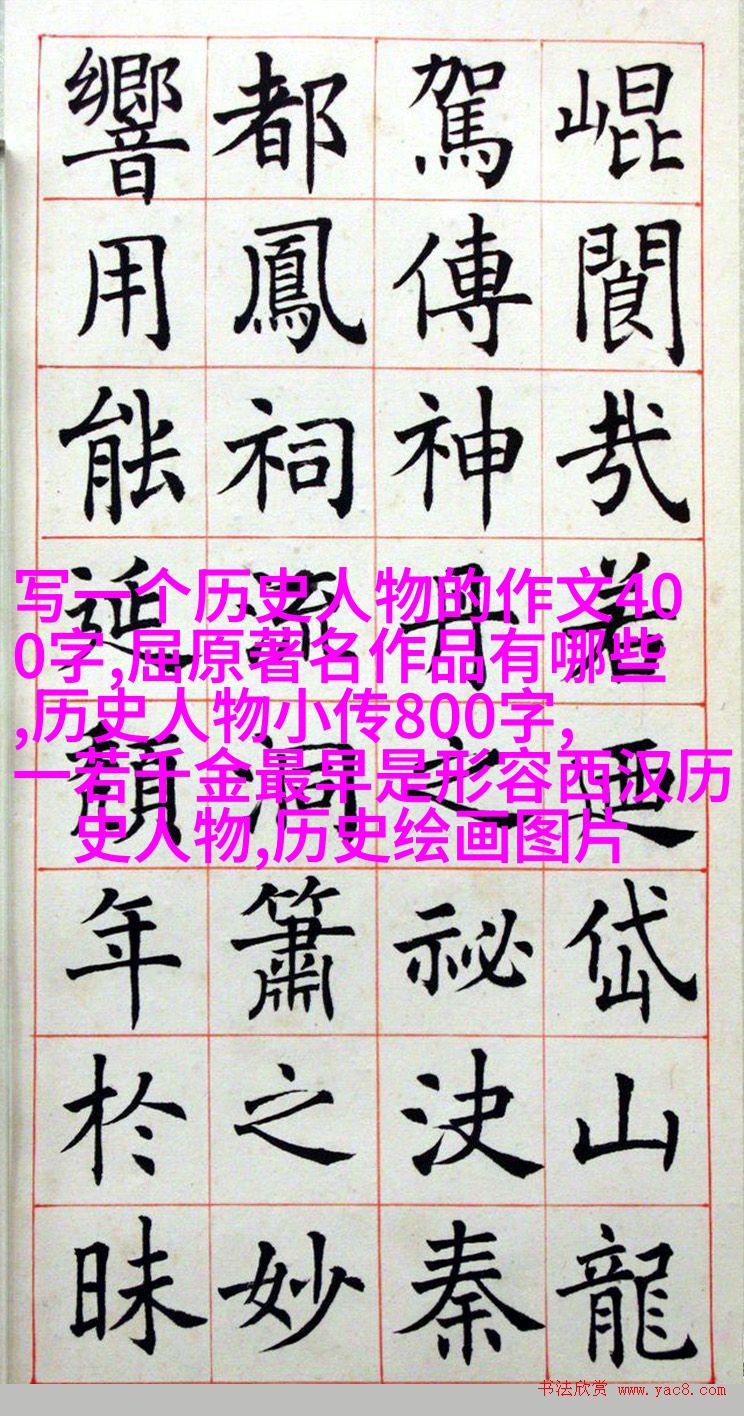 崐閬㢤岱山龍
駕傳神丹之祕決秦
都鳳祠流洞簫之妙
響用能延年於昧
写一个历史人物的作文40
0字,屈原著名作品有哪些
,历史人物小传800字,
一若千金最早是形容西汉历
史人物,历史绘画图片
书法欣赏 www.yac8.com